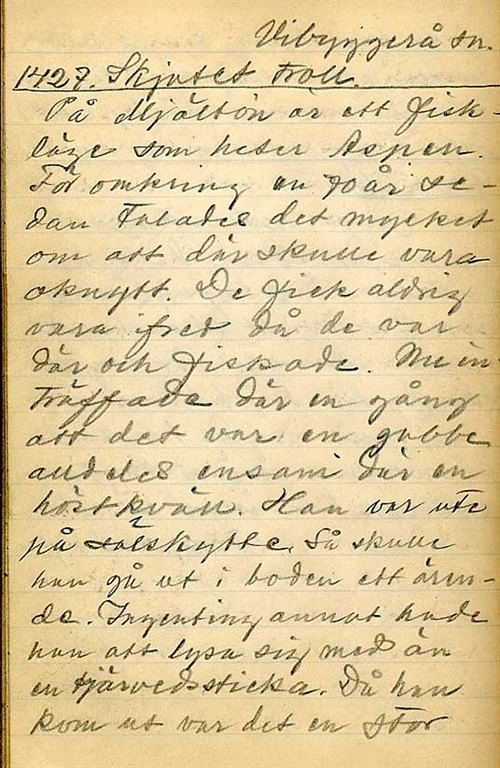 Vibyggerå sn.
1427. Skjutet troll.
På Mjältön är ett fisk-
läge som heter Aspen.
För omkring en 70 år se-
dan talades det mycket
om att där skulle vara
oknytt. De fick aldrig
vara ifred då de var
där och fiskade. Men
träffade där en gång
att det var en gubbe
alldeles ensam där en
höstkväll. Han var ute
på sälskytte. Så skulle
han gå ut i boden ett ären-
de. Ingenting annat hade
han att lysa sig med än
en tjärvedssticka. Då han
kom ut var det en stor